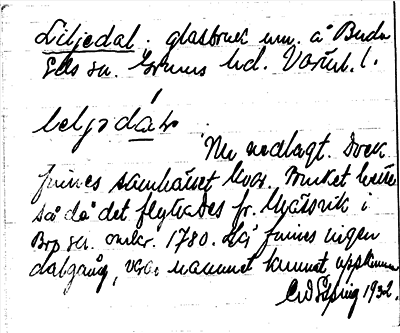 Liljedal. glasbruk um. å Buda
Eds sn. Grums hd. Värml. l.
lelj⁊dáɯ
Nu nedlagt. Dock
finnes samhället kvar. Bruket hette
så då det flyttades fr. Glåsvik i
Bro sn. omkr. 1780. Då finnes ingen
dalgång, varav namnet kunnat uppkomma
1932.